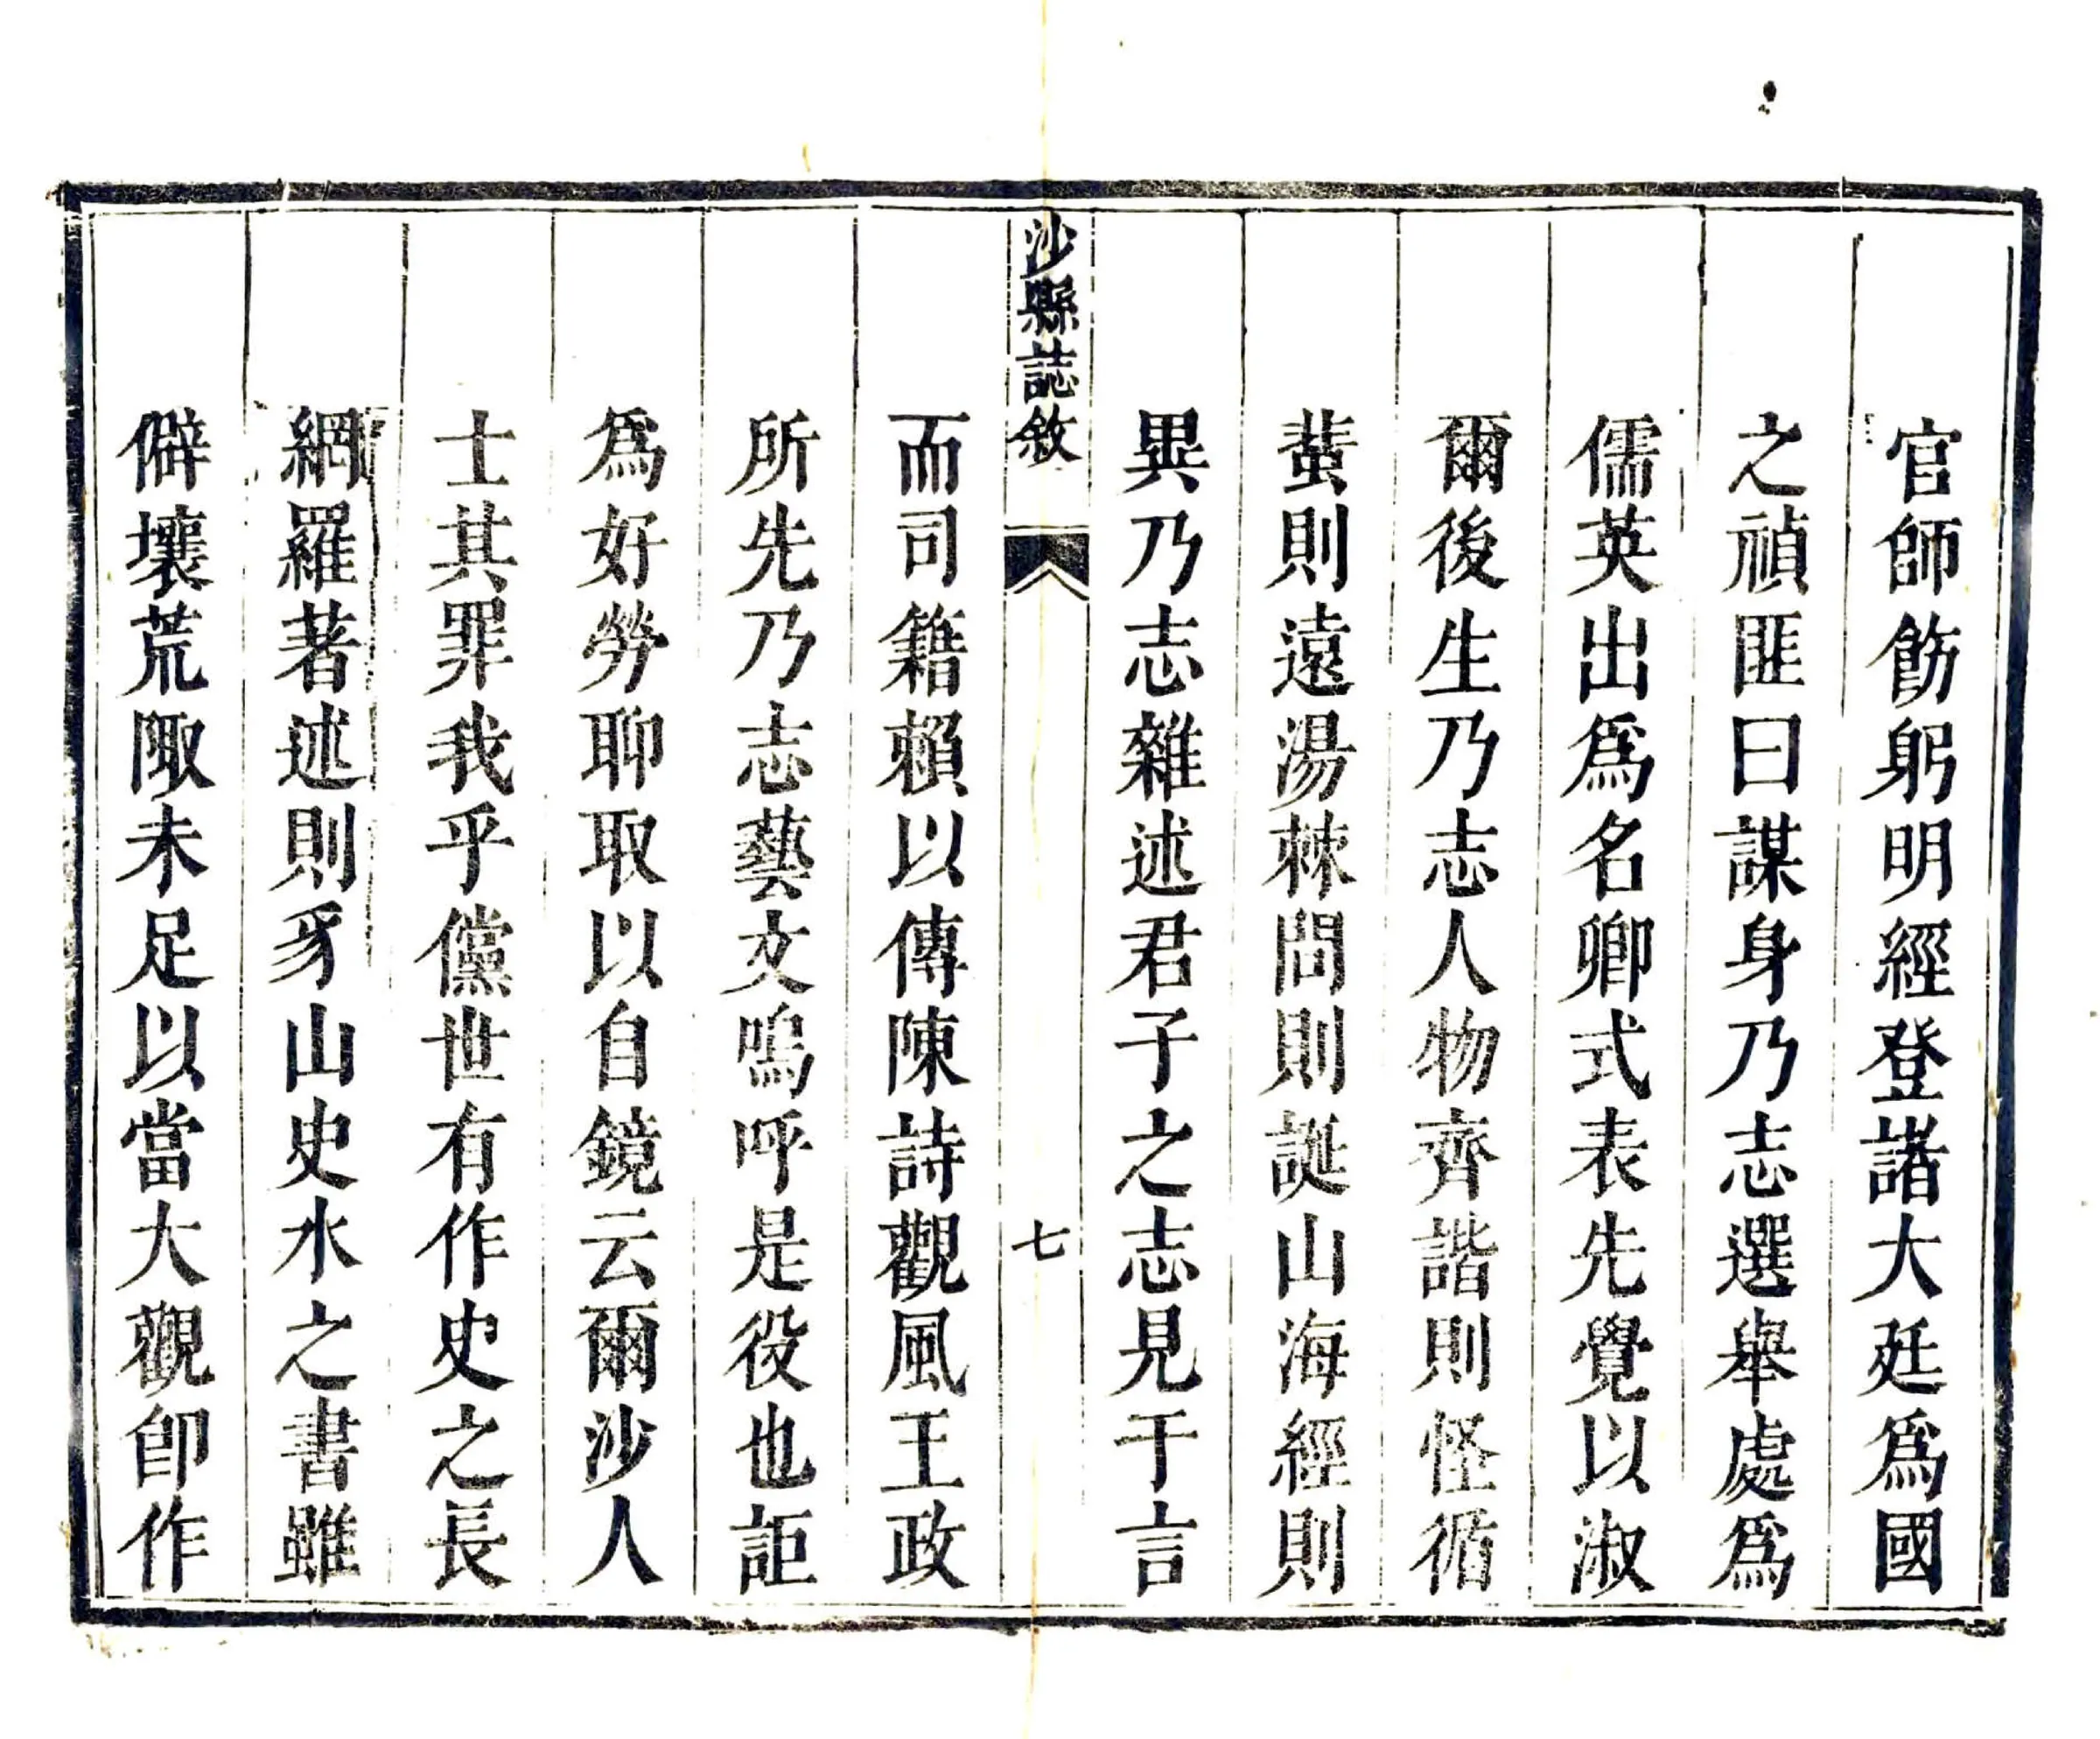 官師飭躬明經登諸大廷爲國
之禎匪曰謀身乃志選舉處爲
儒英出爲名卿式表先覺以淑
爾後生乃志人物齊諧則怪循
蜚則遠湯棘問則誕山海經則
異乃志雜述君子之志見于言
沙縣誌敘
七
而司籍賴以傳陳詩觀風王政
所先乃志藝文嗚呼是役也詎
爲好勞聊取以自鏡云爾沙人
士其罪我乎儻世有作史之長
網羅著述則豸山史水之書雖
僻壤荒陬未足以當大觀卽作